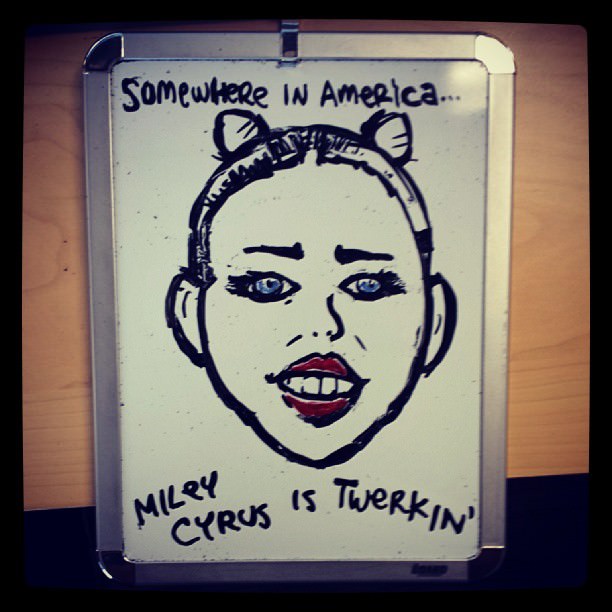 SOMEWHERE IN AMERICA...
MILEY
CYRUS IS TWERKIN'